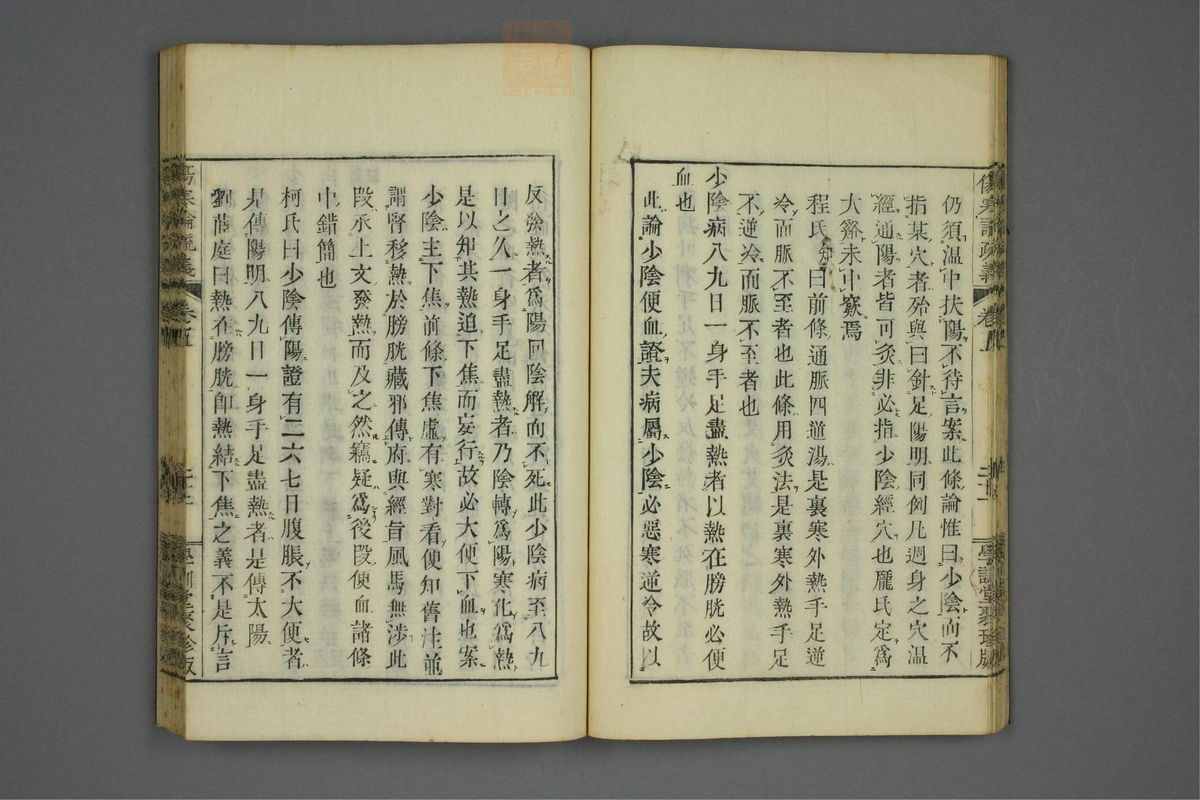 仍須溫中扶陽不待言案此條論惟曰少陰而不
指某穴者殆與曰針足陽明同例凡週身之穴溫
經通陽者皆可灸非必指少陰經穴也龐氏定爲
大谿未中窾焉
程氏知曰前條通脈四逆湯是裏寒外熱手足逆
冷而脈不至者也此條用灸法是裏寒外熱手足
不逆冷而脈不至者也
少陰病八九日一身手足盡熱者以熱在膀胱必便
血也
此論少陰便血證夫病屬少陰必惡寒逆冷故以
反發熱者爲陽回陰解而不死此少陰病至八九
日之久一身手足盡熱者乃陰轉爲陽寒化爲熱
是以知其熱追下焦而妄行故必大便下血也案
少陰主下焦前條下焦虛有寒對看便知舊注並
謂腎移熱於膀胱藏邪傳府與經旨風馬無涉此
段承上文發熱而及之然竊疑爲後段便血諸條
中錯簡也
柯氏曰少陰傳陽證有二六七日腹脹不大便者
是傳陽明八九日一身手足盡熱者是傳太陽
劉茝庭曰熱在膀胱卽熱結下焦之義不是斥言
傷寒論疏義
卷五
學訓堂聚珍版